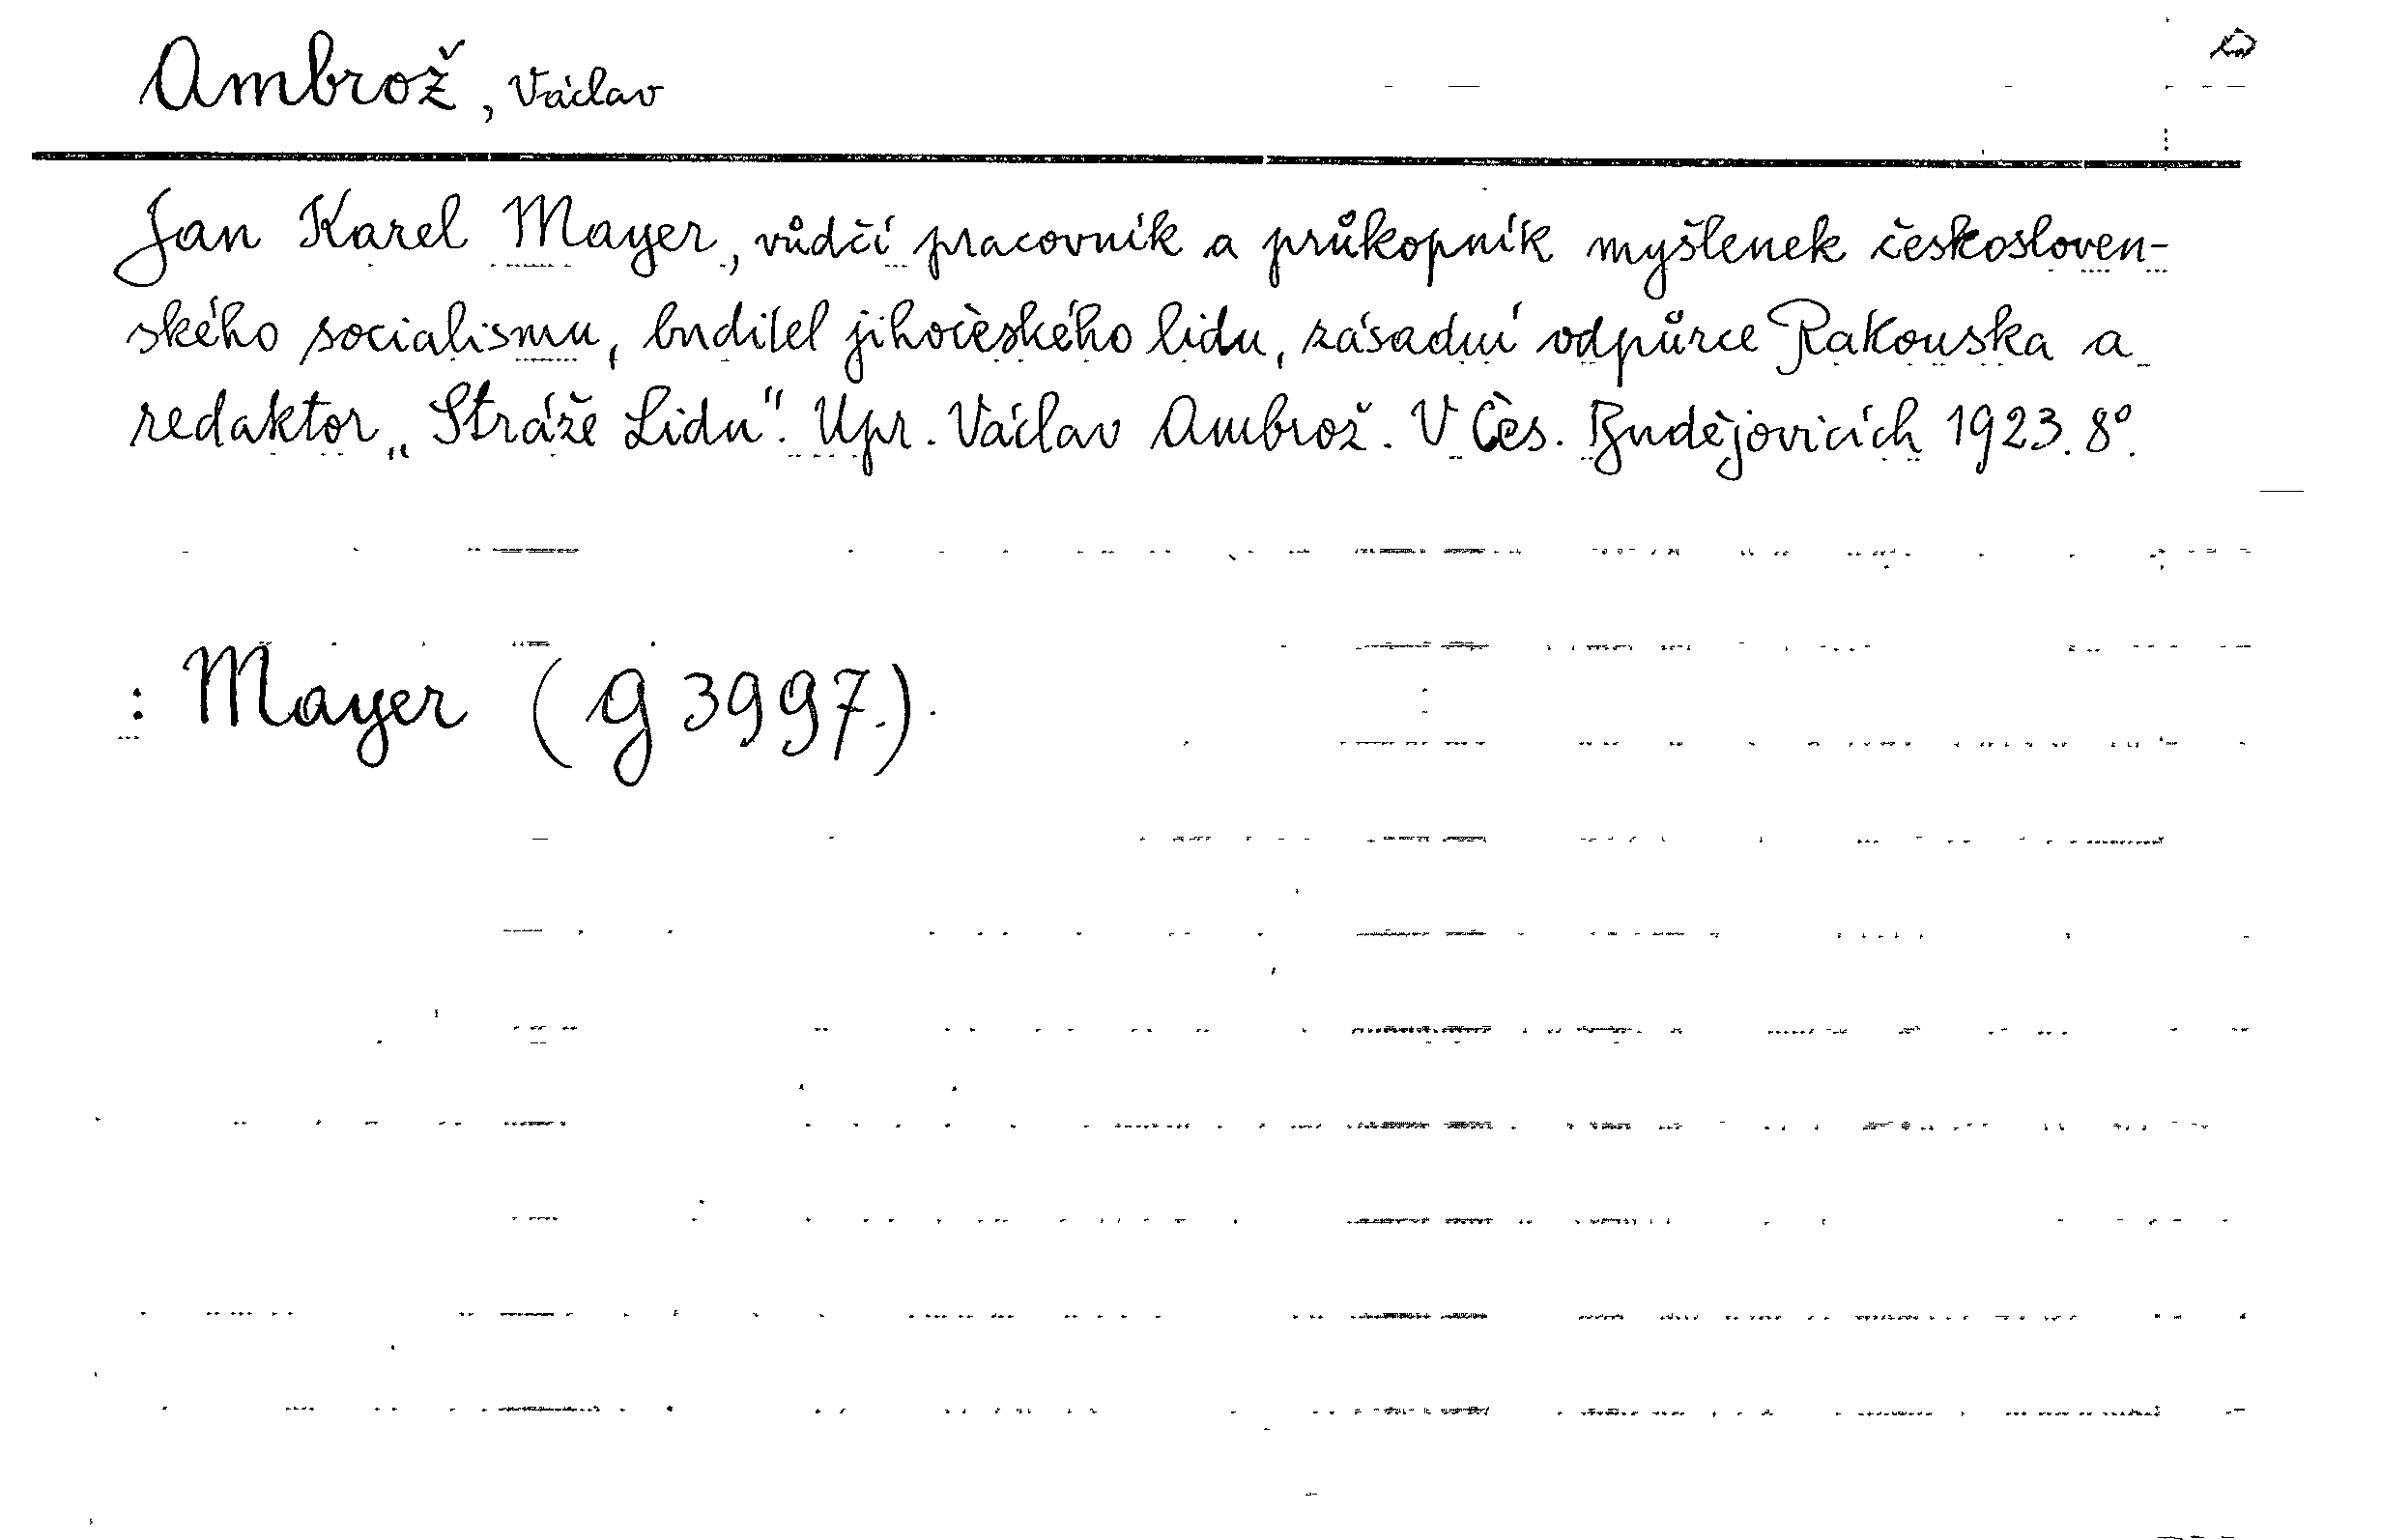 Ambrož, Václav
Jan Karel Mayer, vůdčí pracovník a průkopník myšlenek českosloven-
ského socialismu, buditel jihočeského lidu, zásadní odpůrce Rakouska a
redaktor „Stráže Lidu". Upr. Václav Ambrož. V Čes. Budějovicích 1923. 8°.
: Mayer (g 3997.).